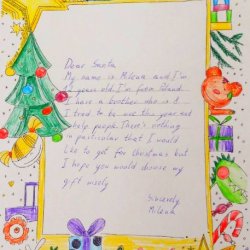 Dear Santa
My name is Milena and I'm
years old. I'm from Poland
I have a brother who is
I tried to be nice this year and
help people. There's nothing
in particular that I would
like to get for Christmas but
I hope you would choose my
gift wisely
Sincerely
Milena